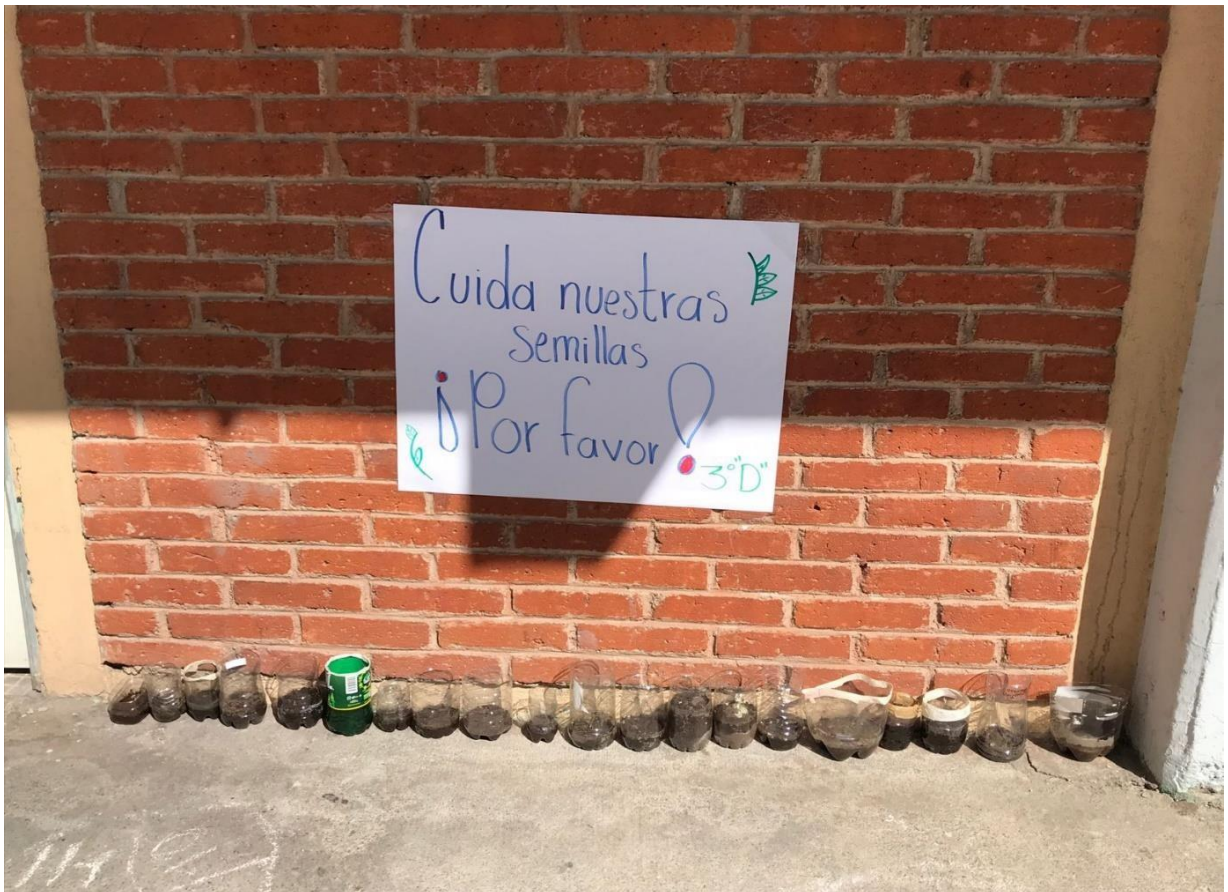 Cuida nuestras
semillas
¡Por favor!
3°"D"